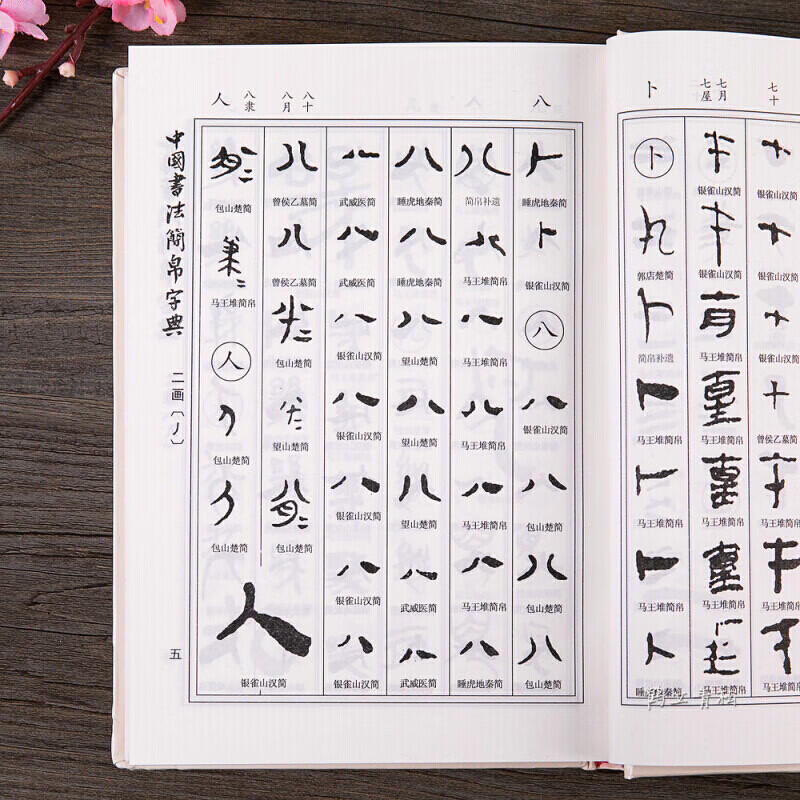 七十
七月
七屋
卜
银雀山汉简
银雀山汉简
银雀山汉简
曾侯乙墓简
马王堆简帛
马王堆简帛
马王堆简帛
银雀山汉简
银雀山汉简
马王堆简帛
马王堆简帛
马王堆简帛
马王堆简帛
马王堆简帛
卜
郭店楚简
简帛补遗
马王堆简帛
马王堆简帛
马王堆简帛
睡虎地秦简
八
八十
八月
八隶
人
睡虎地秦简
银雀山汉简
八
银雀山汉简
包山楚简
包山楚简
包山楚简
简帛补遗
马王堆简帛
马王堆简帛
马王堆简帛
马王堆简帛
马王堆简帛
睡虎地秦简
睡虎地秦简
睡虎地秦简
望山楚简
望山楚简
望山楚简
武威医简
武威医简
武威医简
武威医简
银雀山汉简
银雀山汉简
银雀山汉简
银雀山汉简
银雀山汉简
曾侯乙墓简
曾侯乙墓简
包山楚简
望山楚简
包山楚简
包山楚简
马王堆简帛
人
包山楚简
包山楚简
人
银雀山汉简
中國書法簡帛字典
二画〔丿〕
五